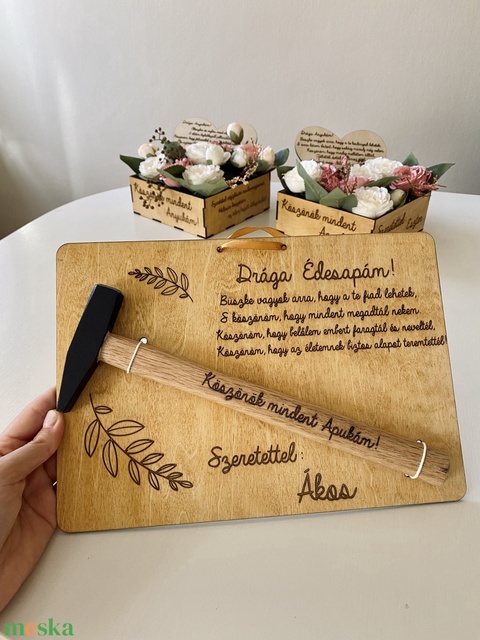 Köszönök mindent
Anyukám!
Köszönök mindent
Drága Édesapám!
Büszke vagyok arra, hogy a te fiad lehetek,
S köszönöm, hogy mindent megadtál nekem
Köszönöm, hogy belőlem embert faragtál és neveltél,
Köszönöm, hogy az életemnek biztos alapot teremtettél!
Köszönök mindent Apukám!
Szeretettel:
Ákos
meska